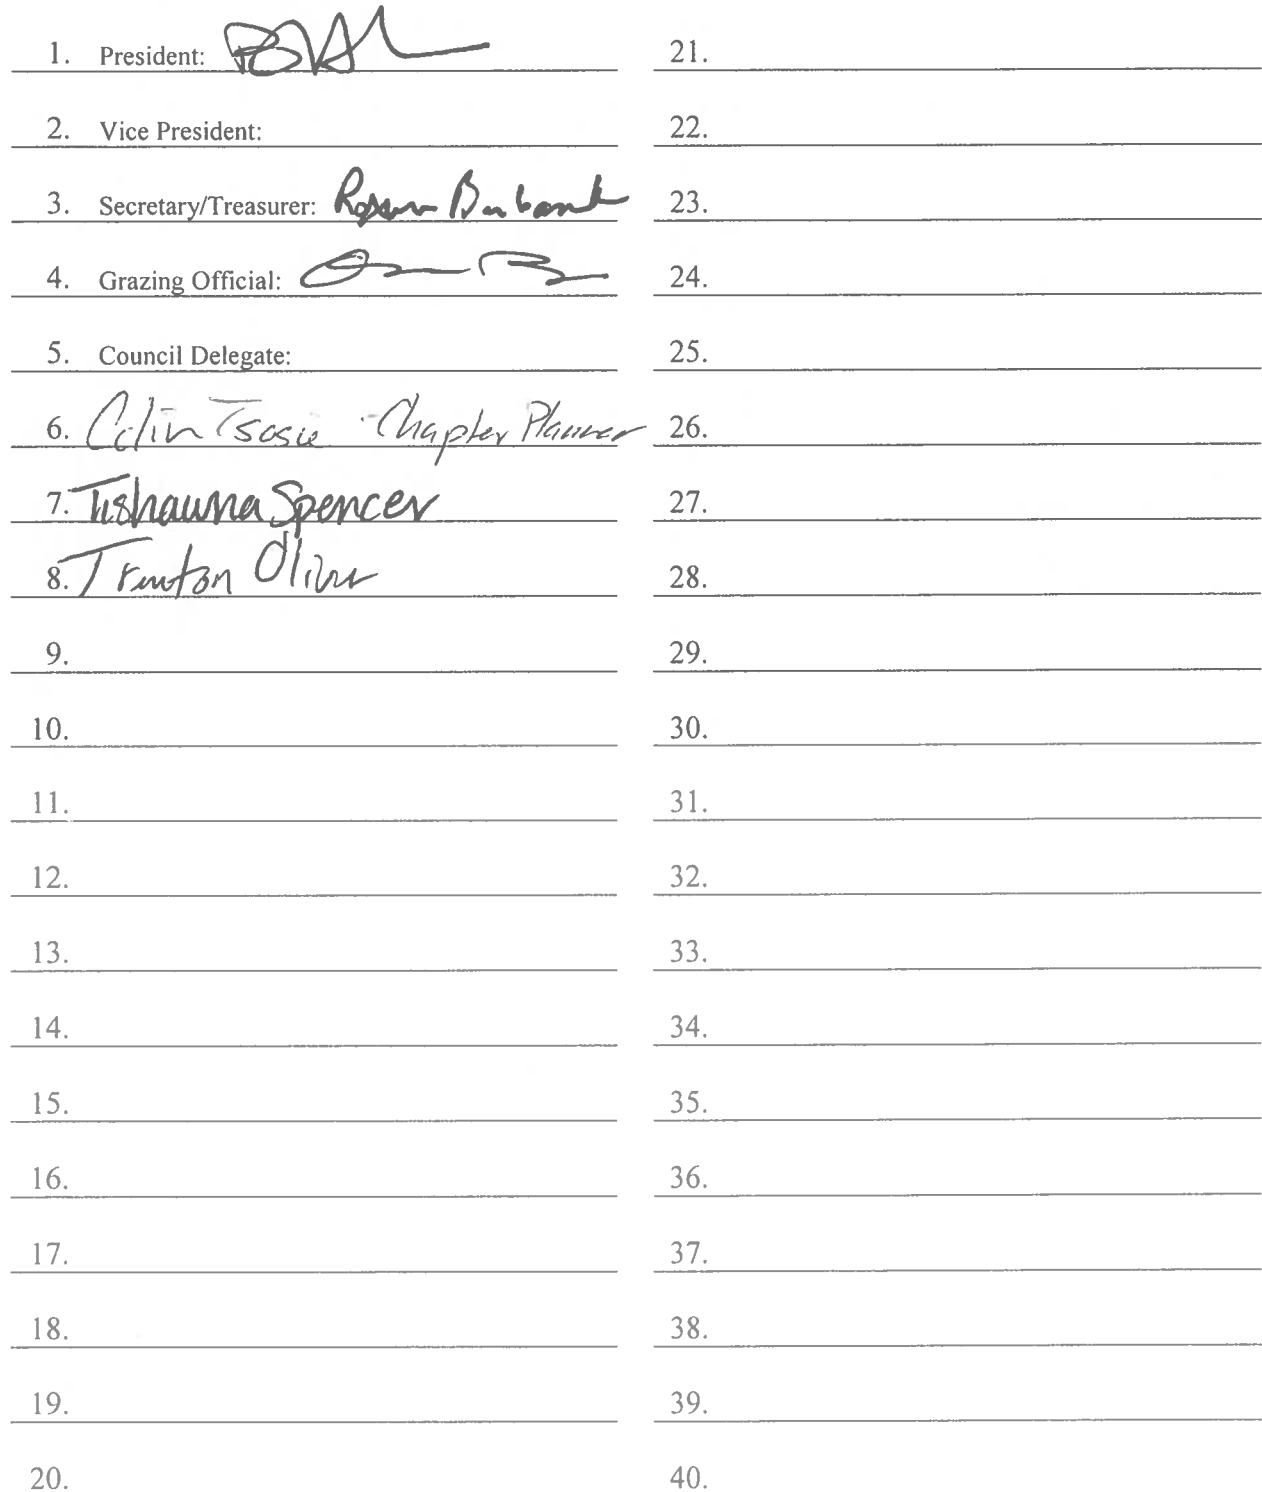 1. President:
2. Vice President:
3. Secretary/Treasurer: Burbank
4. Grazing Official:
5. Council Delegate:
6. Colin Tsosie - Chapter Planner
7. Tishauna Spencer
8. Trenton Oliver
9.
10.
11.
12.
13.
14.
15.
16.
17.
18.
19.
20.
21.
22.
23.
24.
25.
26.
27.
28.
29.
30.
31.
32.
33.
34.
35.
36.
37.
38.
39.
40.